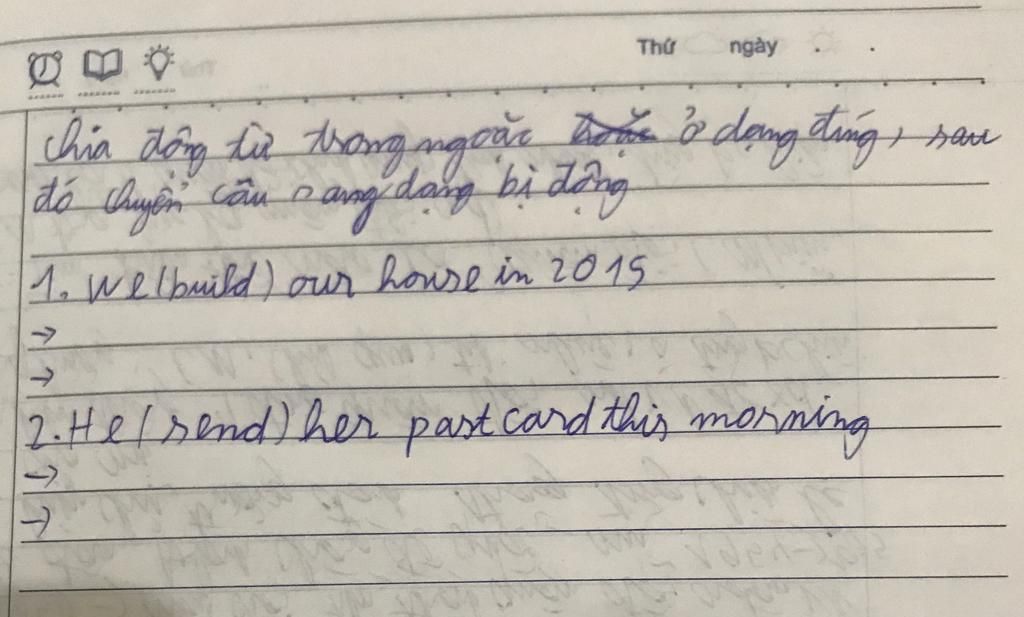 Thứ ngày . .
Chia động từ trong ngoặc ở dạng đúng, sau
đó chuyển câu sang dạng bị động
1. We (build) our house in 2015
→
→
2. He (send) her postcard this morning
→
→